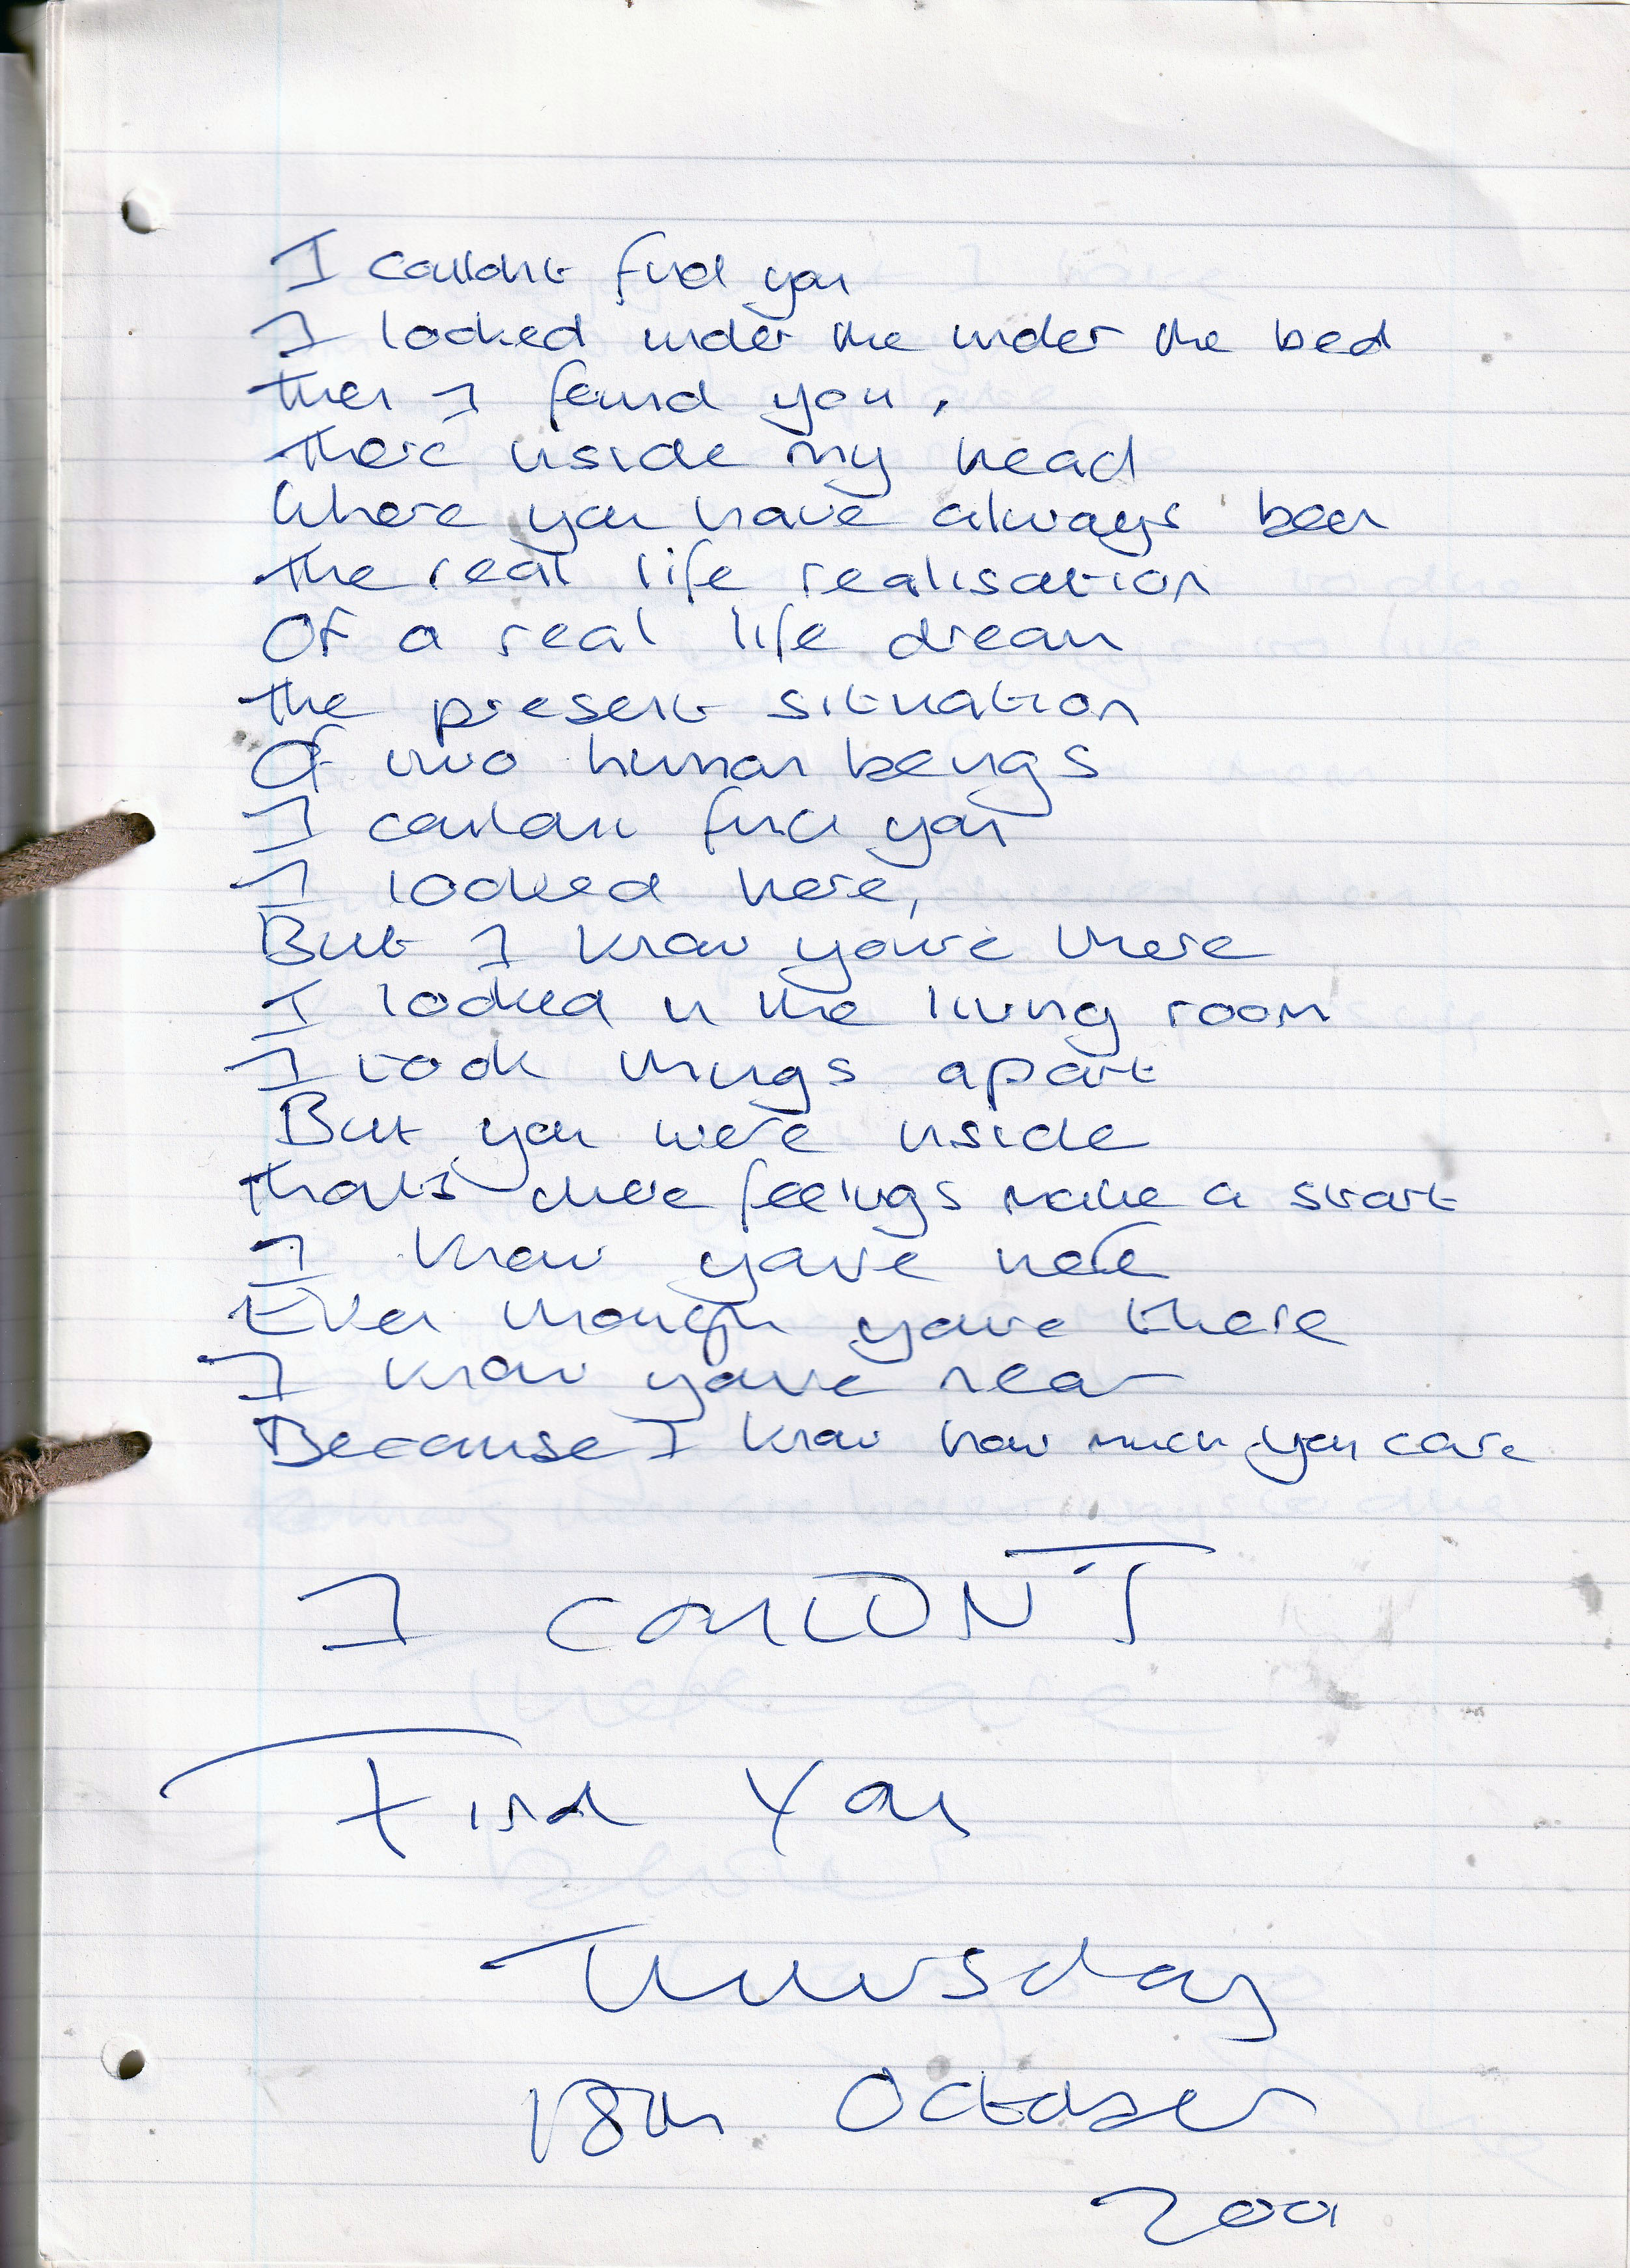 I couldnt find you
I looked under the under the bed
then I found you,
there inside my head
Where you have always been
the real life realisation
Of a real life dream
the present situation
Of two human beings
I couldnt find you
I looked here,
But I know youre there
I looked in the living room
I took things apart
But you were inside
thats where feelings make a start
I know youre here
Even though youre there
I know youre near
Because I know how much you care
I COULDNT
Find You
Thursday
18th October
2001